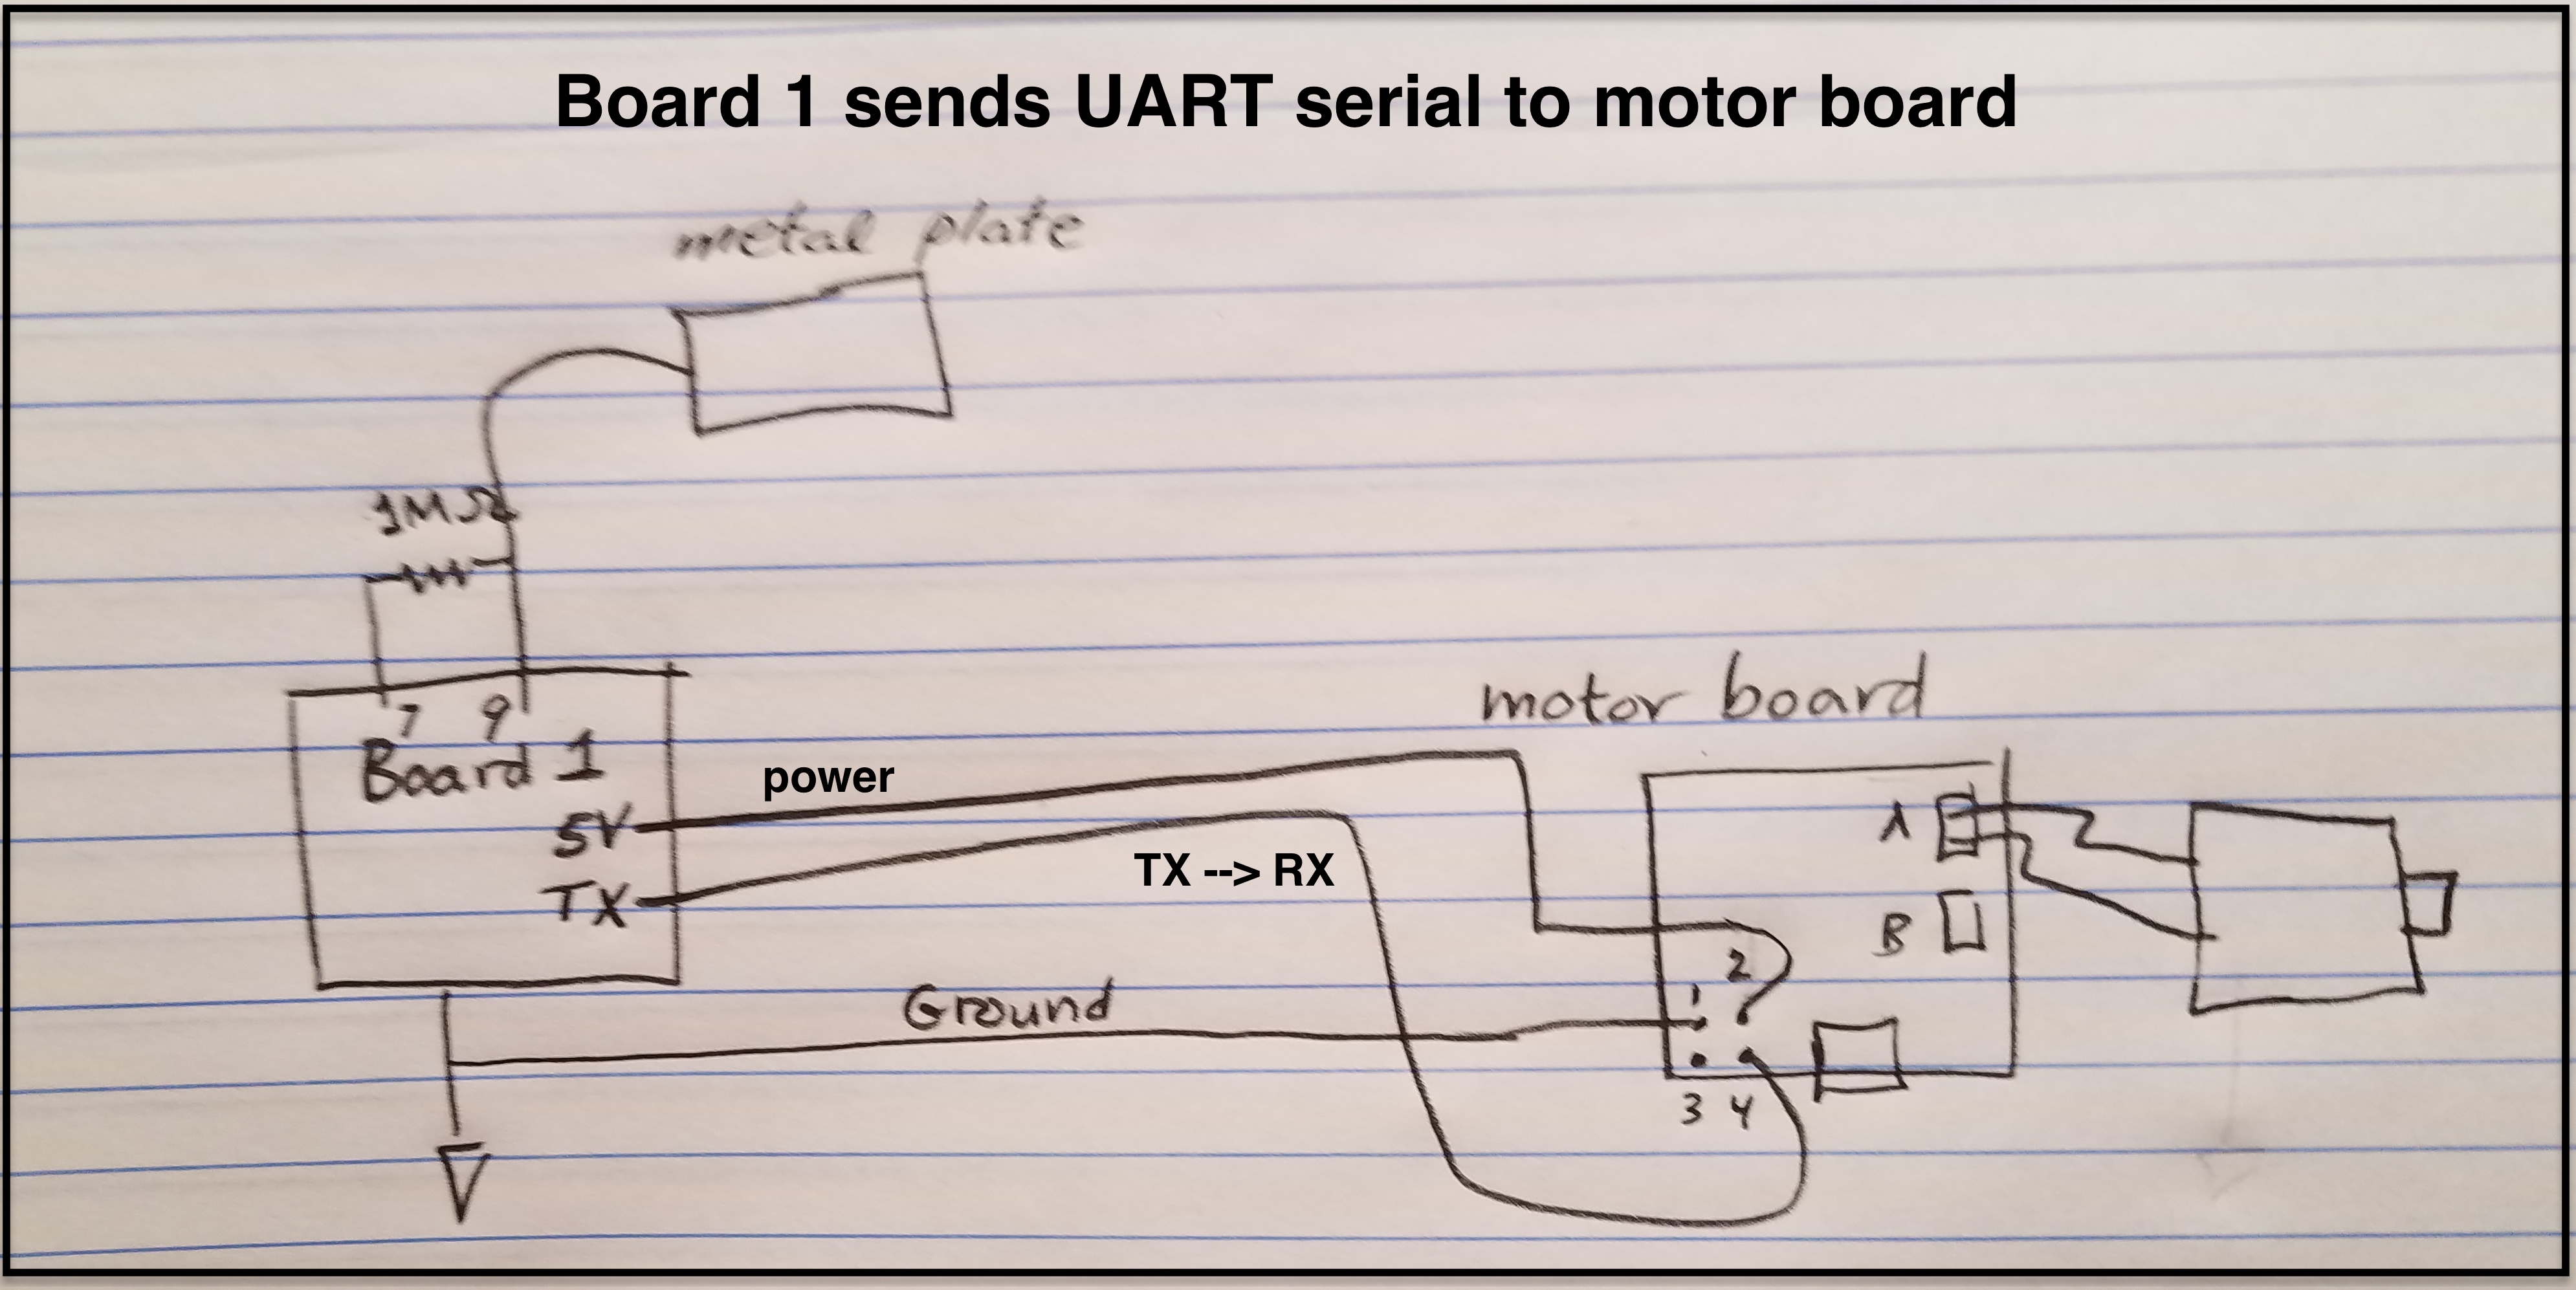 Board 1 sends UART serial to motor board
metal plate
1MΩ
7 9
Board 1
5V
TX
power
TX --> RX
Ground
motor board
A
B
1 2
3 4